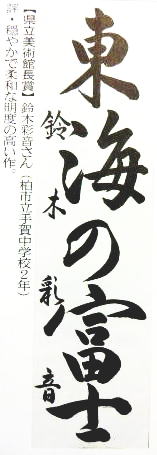 東海の富士
鈴木彩音
【県立美術館長賞】鈴木彩音さん(柏市立手賀中学校2年)
評・穏やかで柔和な明度の高い作。